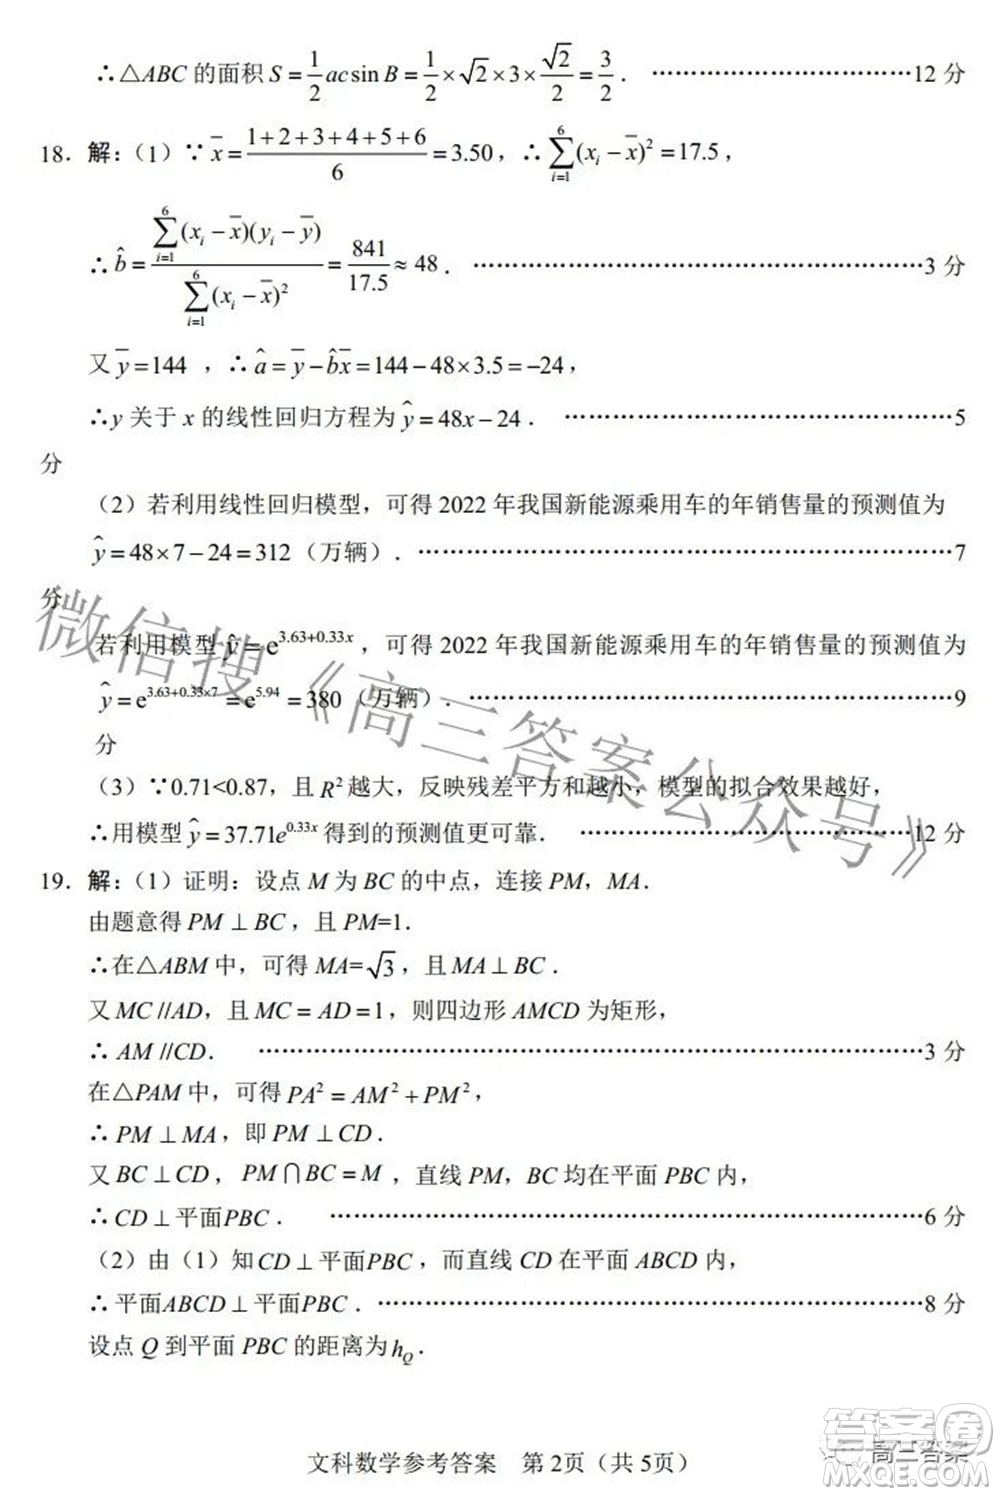 ∴△ABC 的面积 S = 1/2 ac sin B = 1/2 × √2 × 3 × √2/2 = 3/2 . ……………………………12 分
18. 解:(1)∵ x̄ = (1+2+3+4+5+6)/6 = 3.50,∴ ∑_{i=1}^{6}(x_i − x̄)² = 17.5,
∴ b̂ = ∑_{i=1}^{6}(x_i − x̄)(y_i − ȳ) / ∑_{i=1}^{6}(x_i − x̄)² = 841/17.5 ≈ 48 . ……………………………3 分
又 ȳ = 144 ,∴ â = ȳ − b̂x̄ = 144 − 48 × 3.5 = −24,
∴y 关于 x 的线性回归方程为 ŷ = 48x − 24 . ……………………………5
分
(2)若利用线性回归模型,可得 2022 年我国新能源乘用车的年销售量的预测值为
ŷ = 48 × 7 − 24 = 312(万辆). ……………………………7
分
若利用模型 ŷ = e^{3.63+0.33x},可得 2022 年我国新能源乘用车的年销售量的预测值为
ŷ = e^{3.63+0.33×7} = e^{5.94} = 380(万辆). ……………………………9
分
(3)∵0.71<0.87,且 R² 越大,反映残差平方和越小,模型的拟合效果越好,
∴用模型 ŷ = 37.71e^{0.33x} 得到的预测值更可靠. ……………………………12 分
19. 解:(1)证明:设点 M 为 BC 的中点,连接 PM,MA.
由题意得 PM ⊥ BC,且 PM=1.
∴在△ABM 中,可得 MA=√3,且 MA ⊥ BC .
又 MC //AD,且 MC = AD = 1,则四边形 AMCD 为矩形,
∴ AM //CD. ……………………………3 分
在△PAM 中,可得 PA² = AM² + PM²,
∴ PM ⊥ MA,即 PM ⊥ CD .
又 BC ⊥ CD,PM ∩ BC = M,直线 PM,BC 均在平面 PBC 内,
∴ CD ⊥ 平面PBC . ……………………………6 分
(2)由(1)知 CD ⊥ 平面PBC,而直线 CD 在平面 ABCD 内,
∴ 平面ABCD ⊥ 平面PBC . ……………………………8 分
设点 Q 到平面 PBC 的距离为 h_Q .
文科数学参考答案 第 2页(共 5页)
微信搜《高三答案公众号》
高三答案
答案圈
MXQE.COM